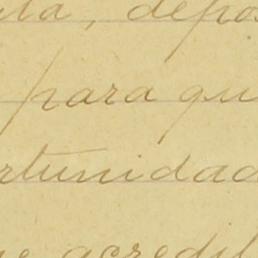 ta, depos
para qu
rtunidad
acredit